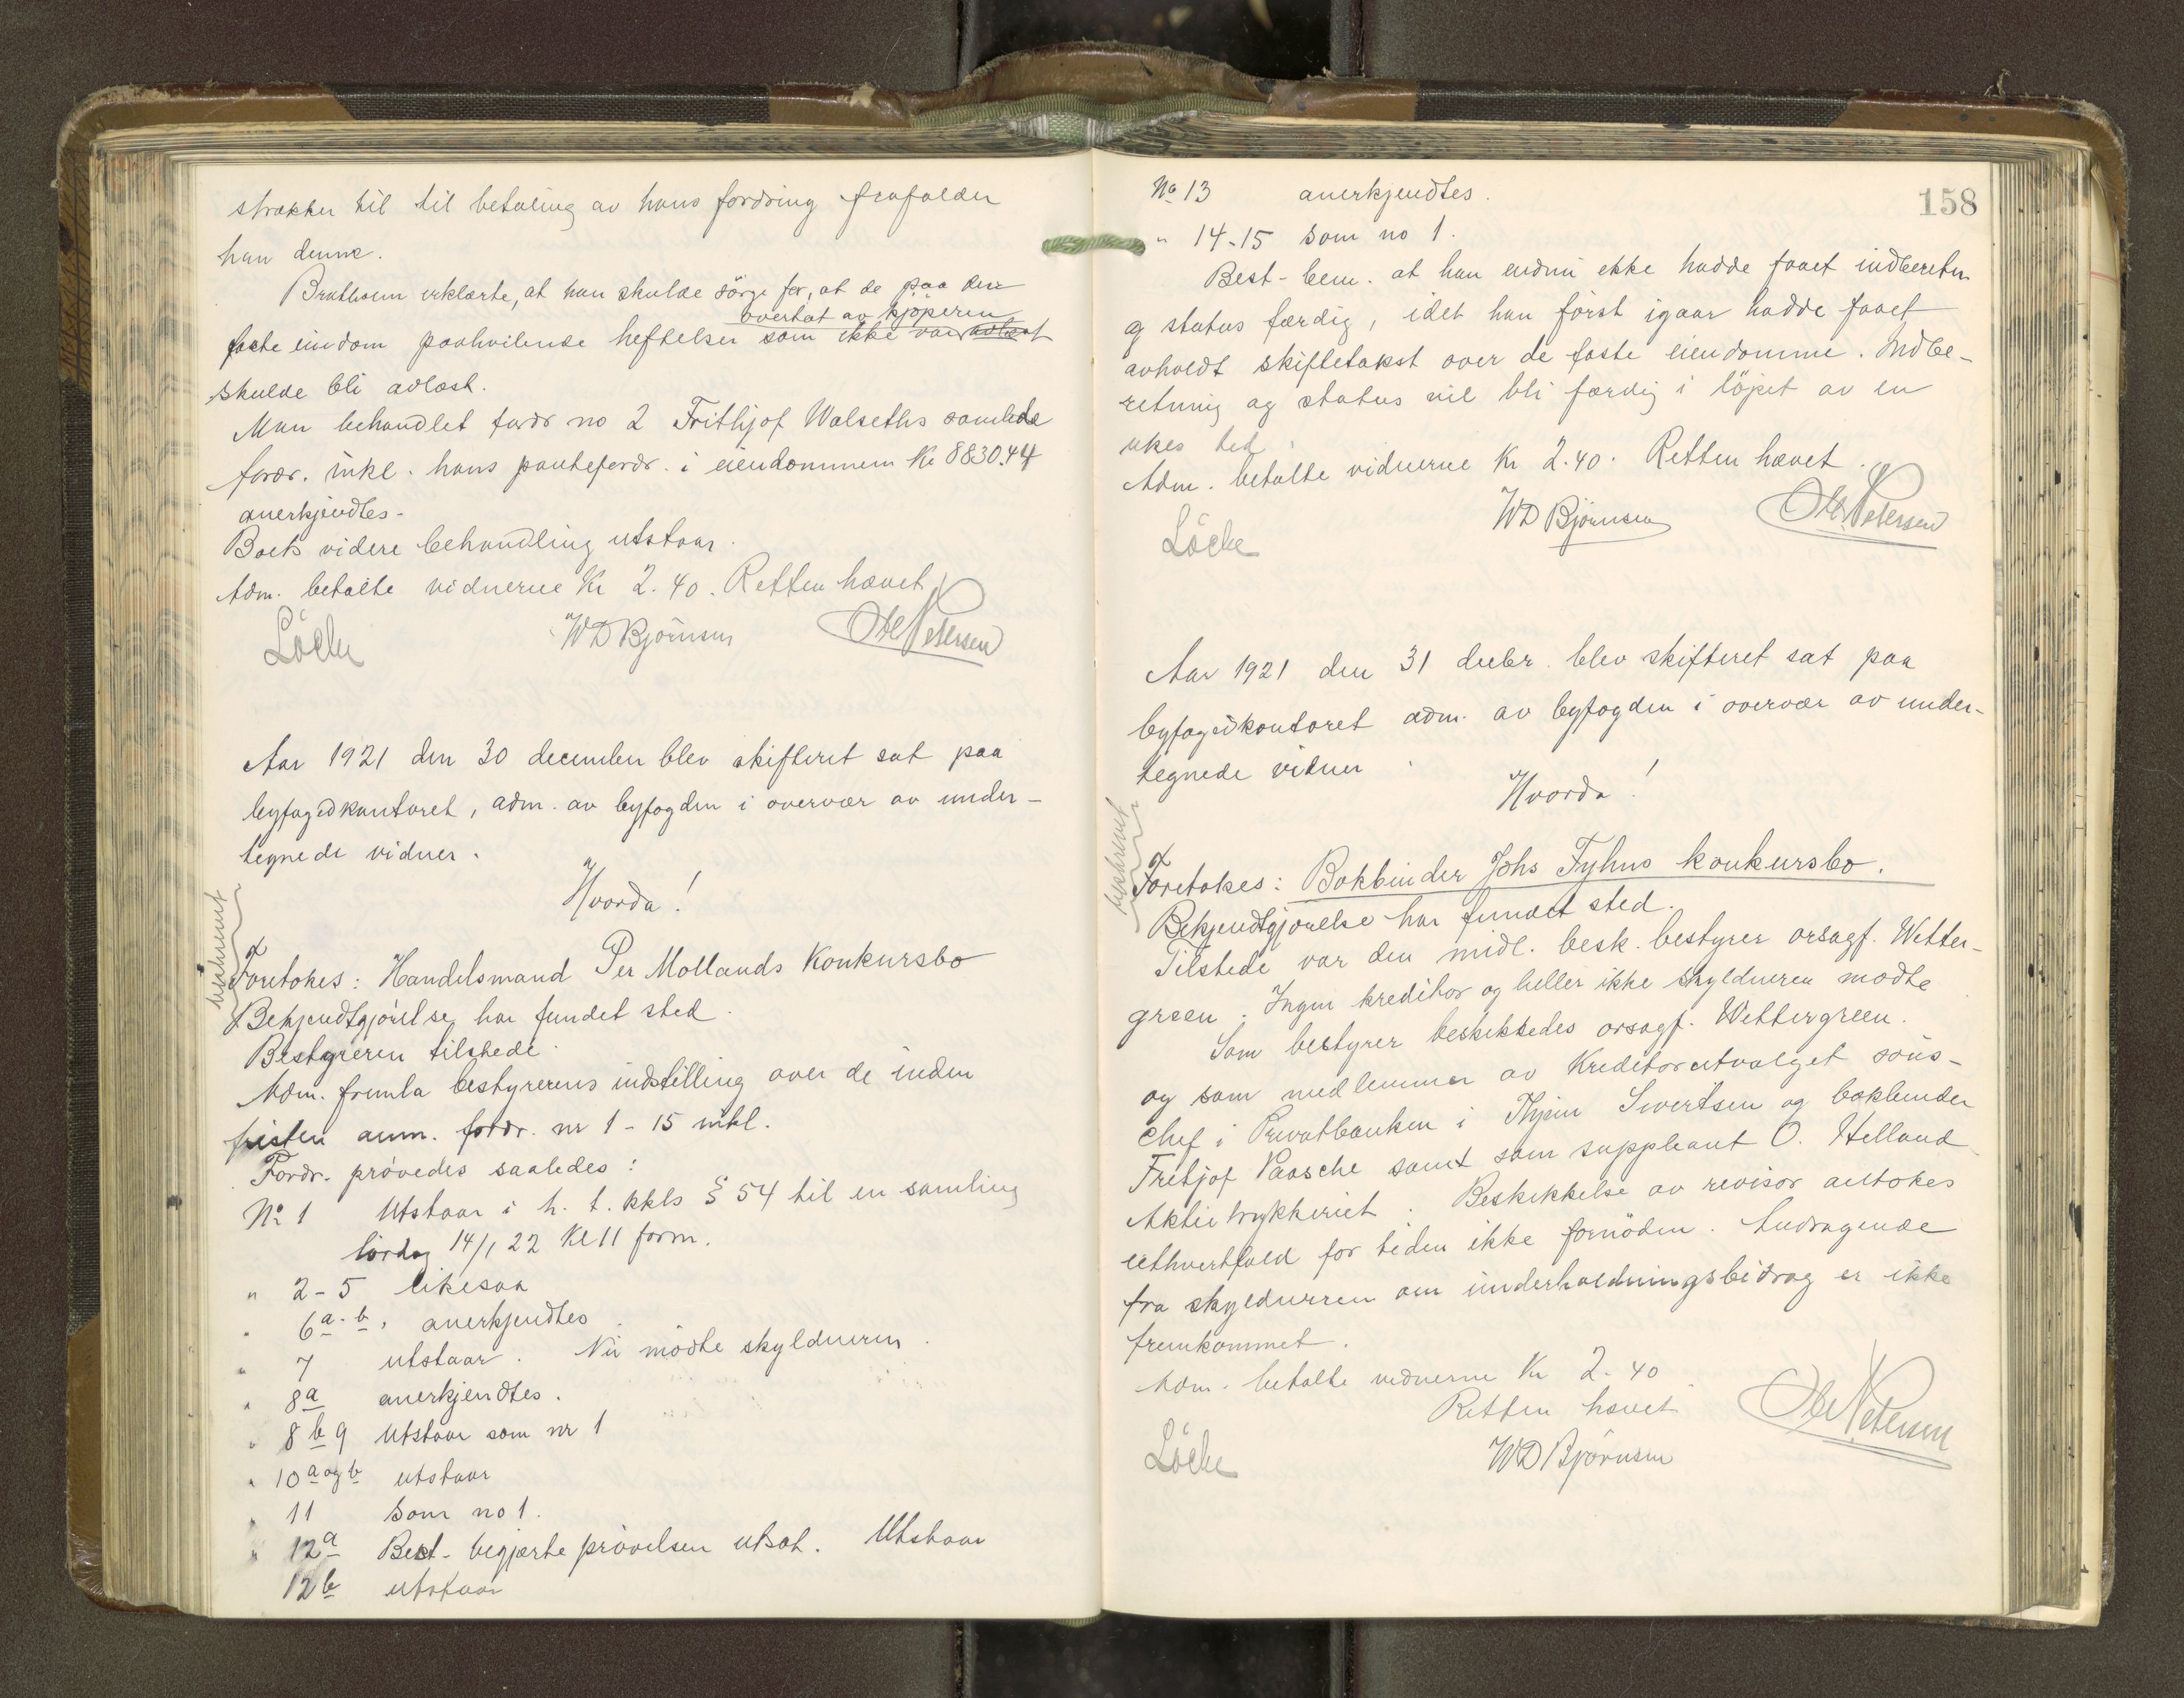 strækker til til betaling av hans fordring frafalder
han denne.
Bratholm erklærte, at han skulde sörge for, at de paa den
overtat av kjöperen
faste eiendom paahvilende heftelser som ikke var avlæst
skulde bli avlæst.
Man behandlet fordr no 2 Frithjof Walseths samlede
fordr. inkl. hans pantefordr. i eiendommen Kr 8830.44
anerkjendtes-
Boets videre behandling utstaar.
Adm. betalte vidnerne Kr 2.40. Retten hævet
Löche WD Björnsen Ole Petersen
Aar 1921 den 30 december blev skifteret sat paa
byfogedkontoret, adm. av byfogden i overvær av under-
tegnede vidner.
Hvorda!
utskrevet
Foretokes: Handelsmand Per Mollands Konkursbo
Bekjendtgjörelse har fundet sted.
Bestyreren tilstede.
Adm. fremla bestyrerens indstilling over de inden
fristen anm. fordr. nr 1-15 inkl.
Fordr. prövedes saaledes:
No 1 Utstaar i h. t. kkls § 54 til en samling
lördag 14/1 22 Kl 11 form.
" 2-5 likesaa
" 6a-b, anerkjendtes
" 7 utstaar. Nu mödte skyldneren.
" 8a anerkjendtes.
" 8b 9 utstaar som nr 1
" 10a og b utstaar
" 11 som no 1.
" 12a Best- begjærte prövelsen utsat. Utstaar
12b utstaar
158
No 13 anerkjendtes.
" 14-15 som no 1.
Best- bem. at han endnu ikke hadde faaet indberetn
og status færdig, idet han först igaar hadde faaet
avholdt skiftetakst over de faste eiendomme. Indbe-
retning og status vil bli færdig i löpet av en
ukes tid.
Adm. betalte vidnerne Kr 2.40. Retten hævet.
Löche WD Björnsen Ole Petersen
Aar 1921 den 31 decbr. blev skifteret sat paa
byfogedkontoret adm. av byfogden i overvær av under-
tegnede vidner.
Hvorda!
utskrevet
Foretokes: Bokbinder Johs Fyhns konkursbo.
Bekjendtgjörelse har fundet sted.
Tilstede var den midl. besk. bestyrer orsagf. Wetter-
green. Ingen kreditor og heller ikke skyldneren mödte
Som bestyrer beskikkedes orsagf. Wettergreen.
og som medlemmer av Kreditorutvalget sous-
chef i Privatbanken i Thjem Sivertsen og bokbinder
Fritjof Paasche samt som suppleant O. Helland
Aktietrykkeriet. Beskikkelse av revisor antokes
iethvertfald for tiden ikke fornöden. Andragende
fra skyldneren om underholdningsbidrag er ikke
fremkommet.
Adm. betalte vidnerne Kr 2.40
Retten hævet
Löche WD Björnsen Ole Petersen